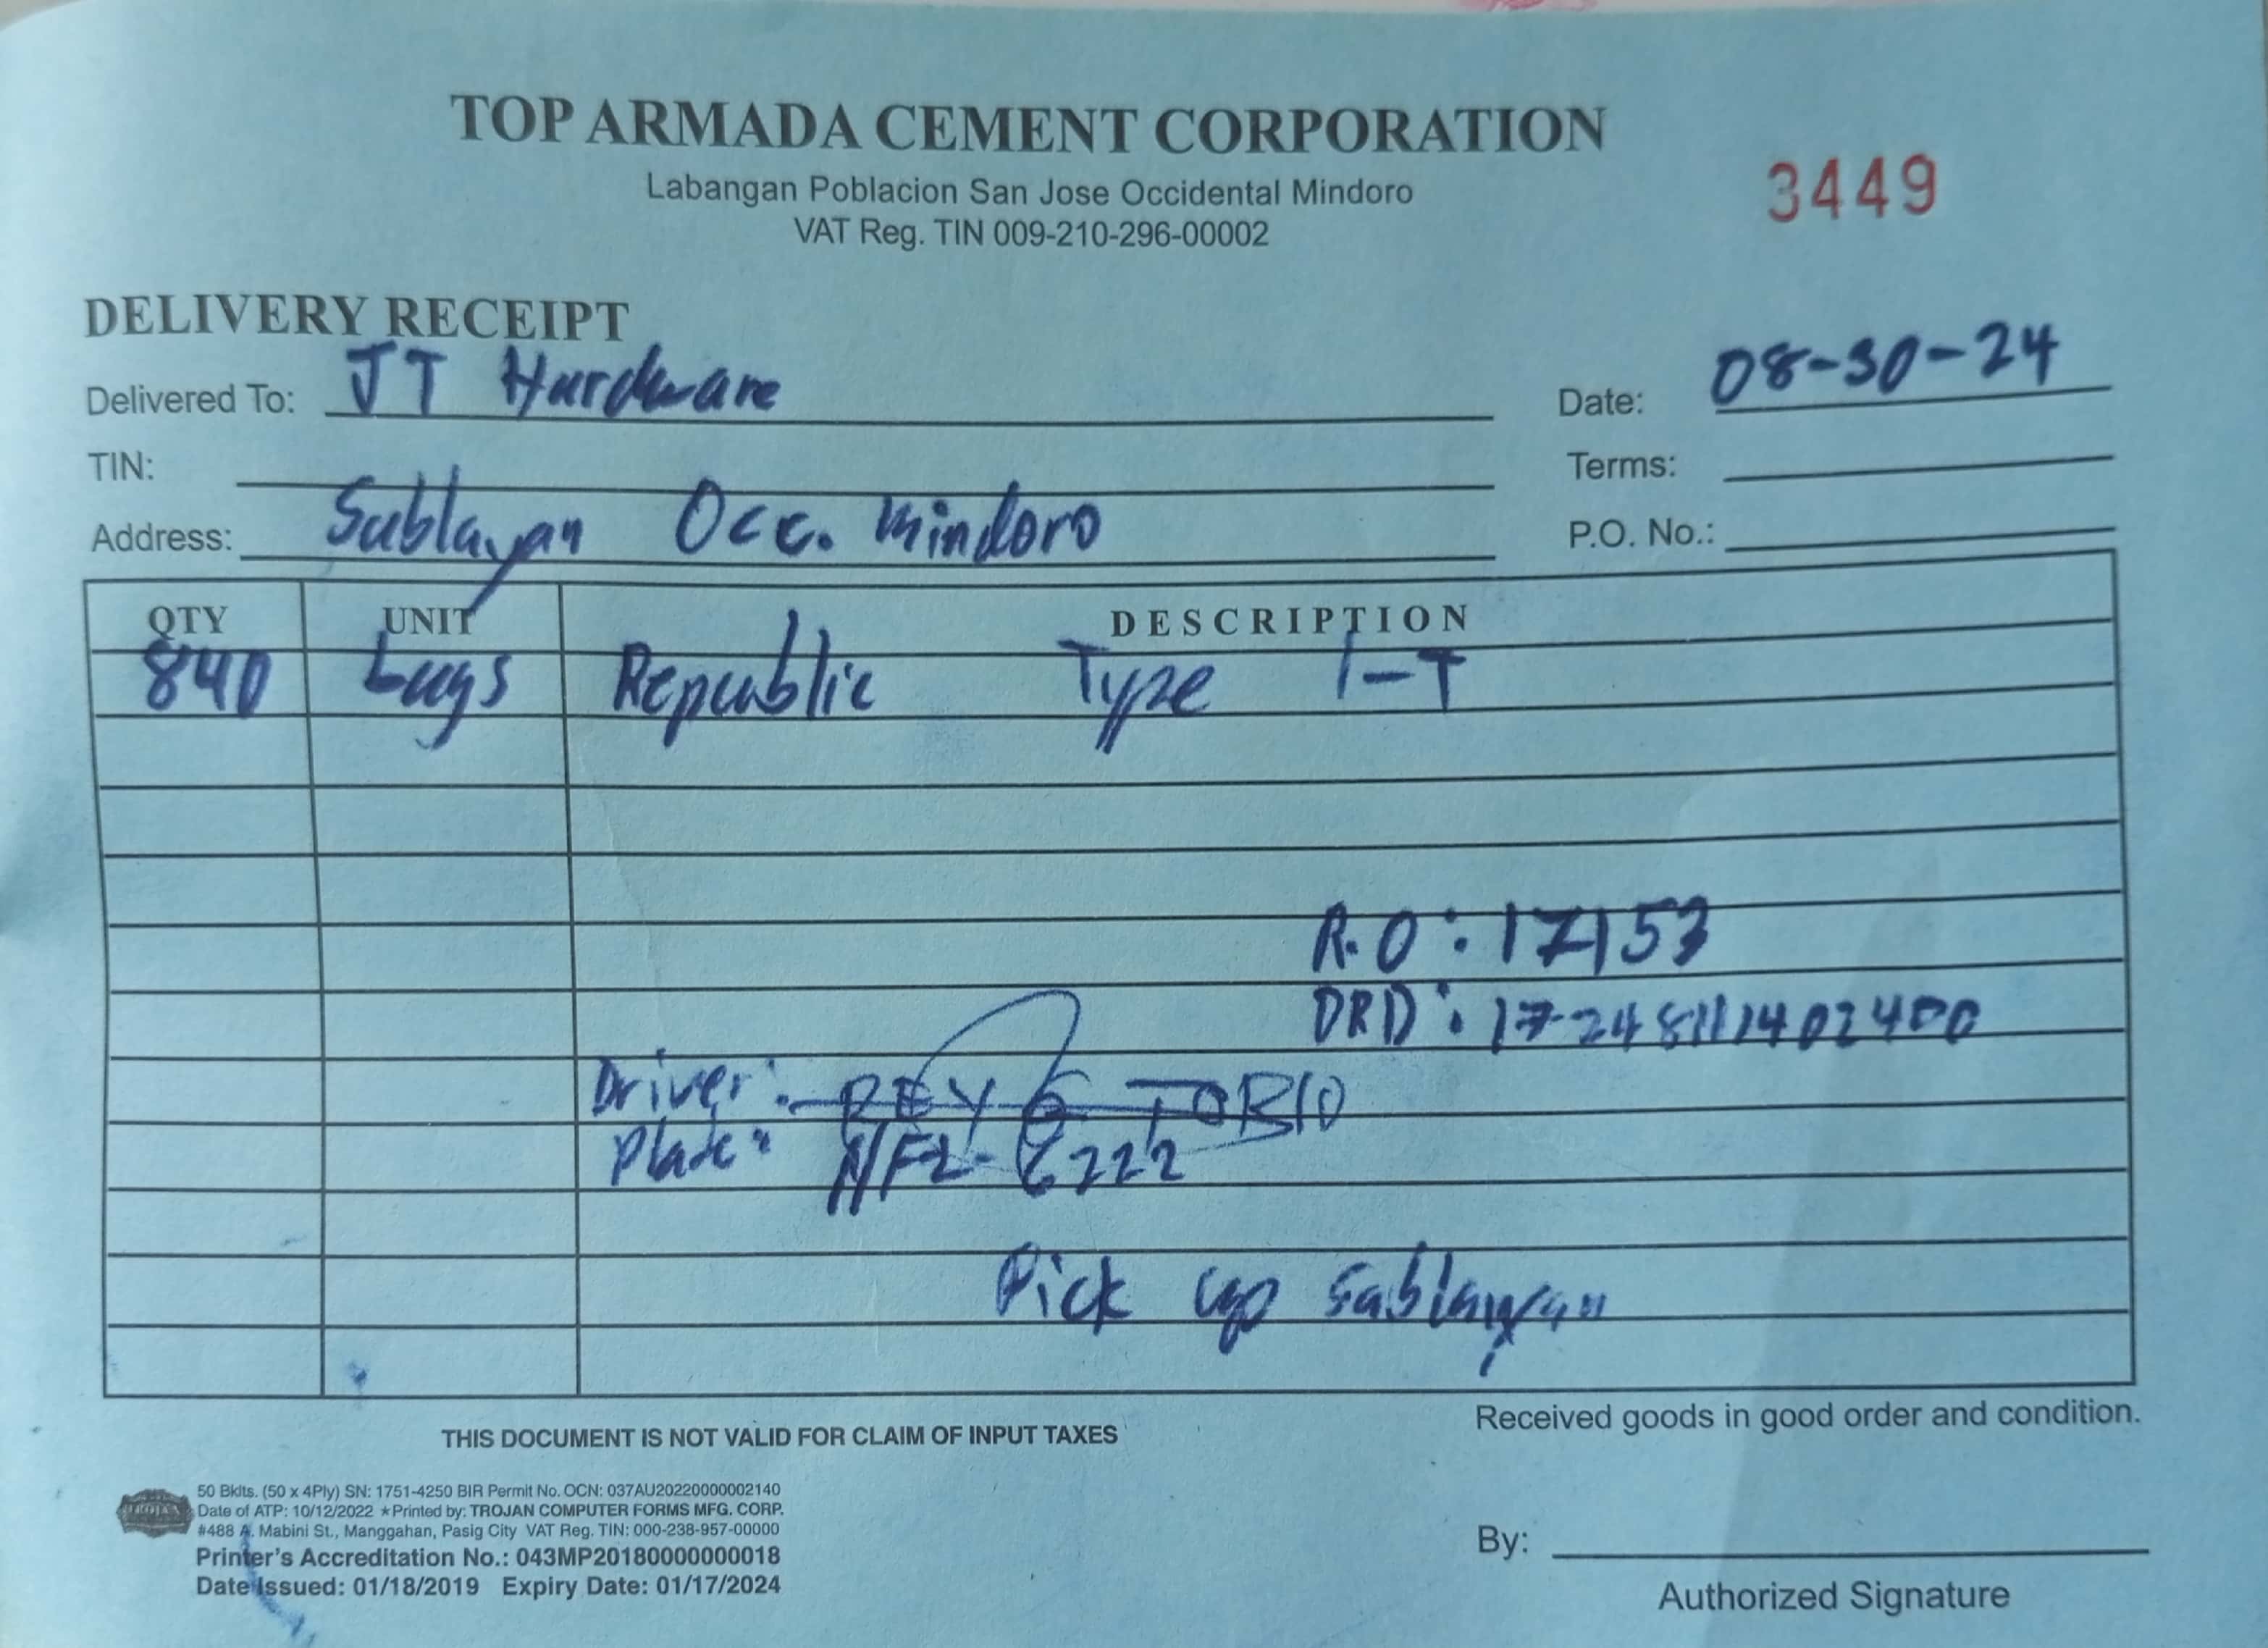 TOP ARMADA CEMENT CORPORATION
Labangan Poblacion San Jose Occidental Mindoro
VAT Reg. TIN 009-210-296-00002
3449
DELIVERY RECEIPT
Delivered To: JT Hardware
Date: 08-30-24
TIN:
Terms:
Address: Sablayan Occ. Mindoro
P.O. No.:
QTY UNIT DESCRIPTION
840 bags Republic Type 1-T
R.O: 17153
DRD: 1724811402400
Driver: REY G TORIO
Plate: NFZ-6222
Pick up Sablayan
THIS DOCUMENT IS NOT VALID FOR CLAIM OF INPUT TAXES
Received goods in good order and condition.
TROJAN
50 Bklts. (50 x 4Ply) SN: 1751-4250 BIR Permit No. OCN: 037AU20220000002140
Date of ATP: 10/12/2022 ★Printed by: TROJAN COMPUTER FORMS MFG. CORP.
#488 A. Mabini St., Manggahan, Pasig City VAT Reg. TIN: 000-238-957-00000
Printer's Accreditation No.: 043MP20180000000018
Date Issued: 01/18/2019 Expiry Date: 01/17/2024
By:
Authorized Signature